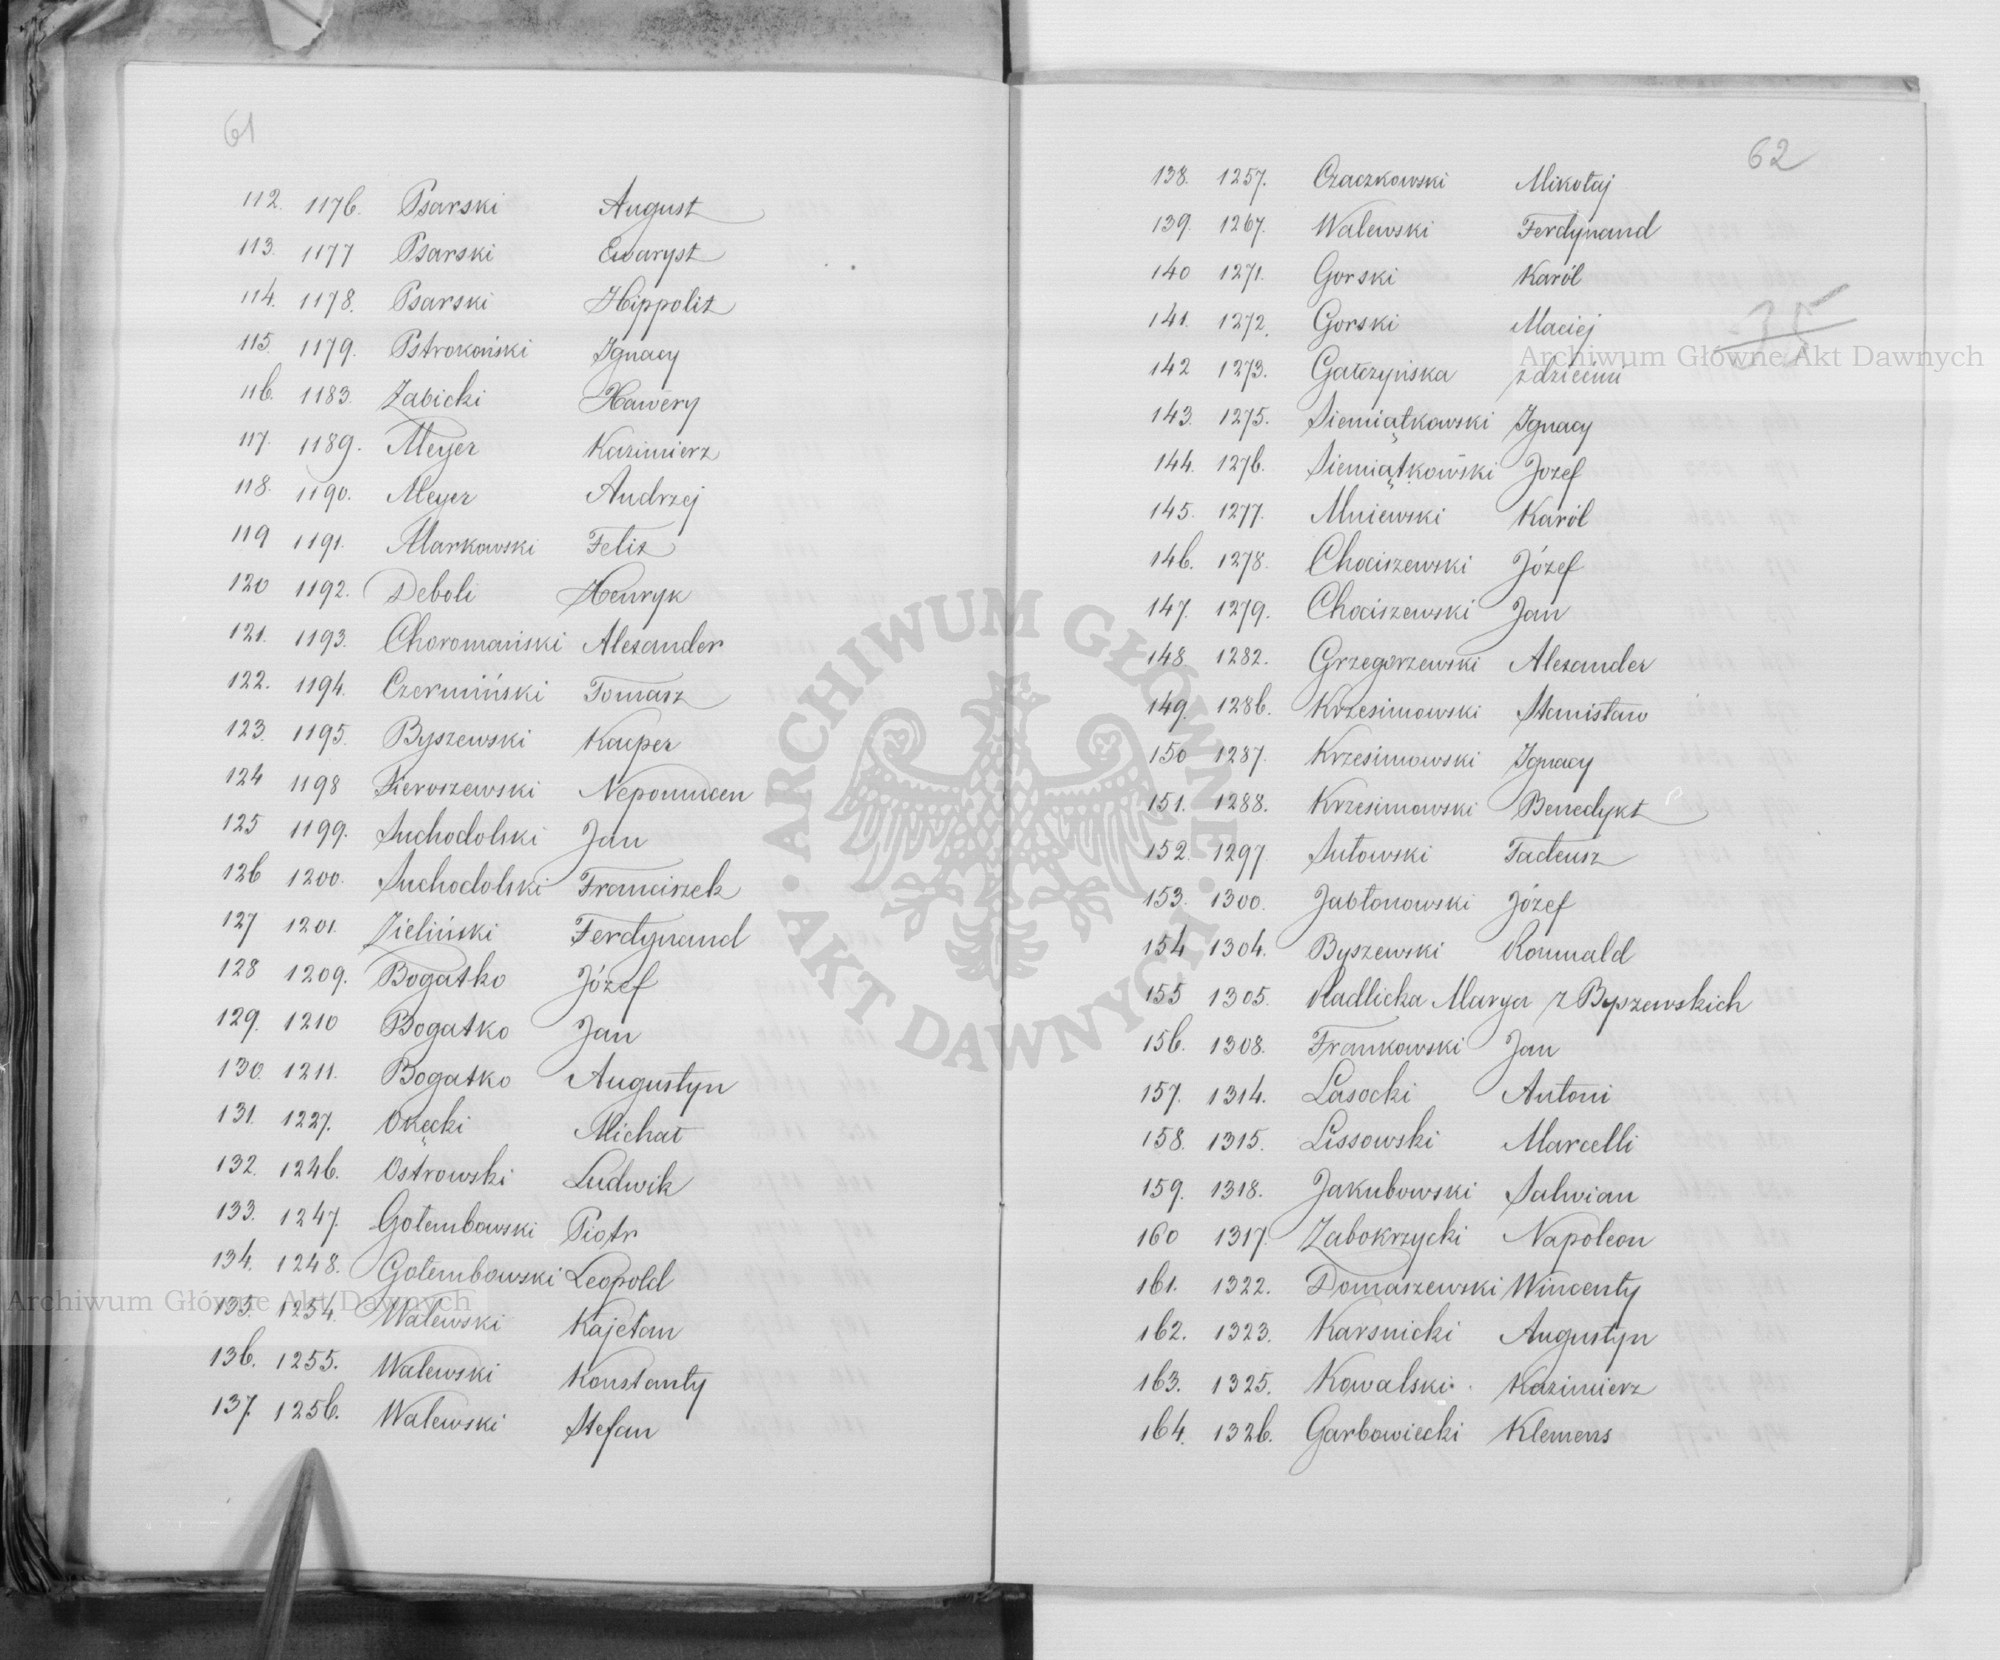 61
112. 1176. Psarski August
113. 1177 Psarski Ewaryst
114. 1178. Psarski Hippolit
115. 1179. Pstrokoński Ignacy
116. 1183. Zabicki Xawery
117. 1189. Meyer Kazimierz
118. 1190. Meyer Andrzej
119 1191. Markowski Felix
120 1192. Deboli Henryk
121. 1193. Choromański Alexander
122. 1194. Czermiński Tomasz
123. 1195. Byszewski Kacper
124 1198 Sieroszewski Nepomucen
125 1199. Suchodolski Jan
126 1200. Suchodolski Franciszek
127 1201. Zieliński Ferdynand
128 1209. Bogatko Józef
129. 1210 Bogatko Jan
130. 1211. Bogatko Augustyn
131. 1227. Okęcki Michał
132. 1246. Ostrowski Ludwik
133. 1247. Gołembowski Piotr
134. 1248. Gołembowski Leopold
135. 1254. Walewski Kajetan
136. 1255. Walewski Konstanty
137. 1256. Walewski Stefan
62
138. 1257. Czaczkowski Mikołaj
139. 1267. Walewski Ferdynand
140 1271. Gorski Karól
141. 1272. Gorski Maciej
35
142 1273. Gałczyńska z dziećmi
143. 1275. Siemiątkowski Ignacy
144. 1276. Siemiątkowski Jozef
145. 1277. Mniewski Karól
146. 1278. Chociszewski Józef
147. 1279. Chociszewski Jan
148. 1282. Grzegorzewski Alexander
149. 1286. Krzesimowski Stanisław
150 1287. Krzesimowski Ignacy
151. 1288. Krzesimowski Benedykt
152. 1297. Sułowski Tadeusz
153. 1300. Jabłonowski Józef
154 1304. Byszewski Romuald
155 1305. Nadlicka Marya z Byszewskich
156. 1308. Frankowski Jan
157. 1314. Lasocki Antoni
158. 1315. Lissowski Marcelli
159. 1318. Jakubowski Salwian
160 1317. Zabokrzycki Napoleon
161. 1322. Domaszewski Wincenty
162. 1323. Karsnicki Augustyn
163. 1325. Kowalski Kazimierz
164. 1326. Garbowiecki Klemens
Archiwum Główne Akt Dawnych
ARCHIWUM GŁÓWNE · AKT DAWNYCH ·
Archiwum Główne Akt Dawnych